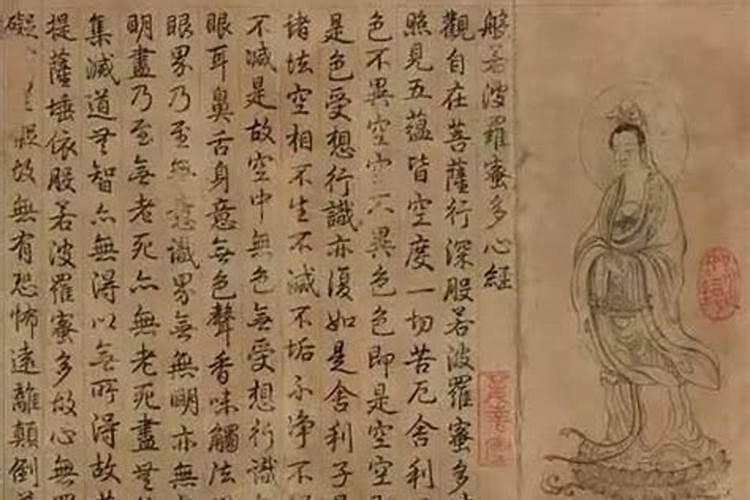 般若波羅蜜多心經
觀自在菩薩行深般若波羅蜜多
照見五蘊皆空度一切苦厄舍利
色不異空空不異色色即是空空
是色受想行識亦復如是舍利子是
諸法空相不生不滅不垢不净不
不減是故空中無色無受想行識
眼耳鼻舌身意無色聲香味觸法
眼界乃至無意識界無無明亦無
明盡乃至無老死亦無老死盡無
集滅道無智亦無得以無所得故菩
提薩埵依般若波羅蜜多故心無罣
礙故無有恐怖遠離顛倒